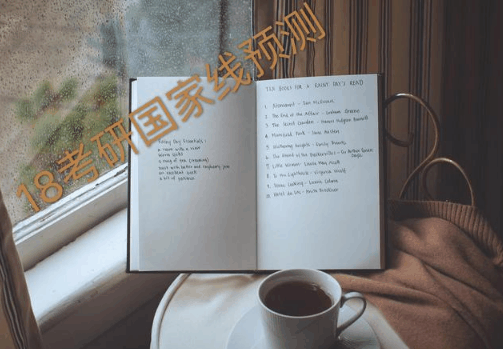 18考研国家线预测
Rainy Day Essentials:
a room with a view
warm socks
a mug of tea (steaming)
toast with butter and raspberry jam
an excellent book
a bit of patience
TEN BOOKS FOR A RAINY DAY'S READ
1. Atonement - Ian McEwan
2. The End of the Affair - Graham Greene
3. The Secret Garden - Frances Hodgson Burnett
4. Mansfield Park - Jane Austen
5. Wuthering Heights - Emily Brontë
6. The Hound of the Baskervilles - Sir Arthur Conan Doyle
7. Little Women - Louisa May Alcott
8. To the Lighthouse - Virginia Woolf
9. - Laura
10. Hotel du Lac - Anita Brookner